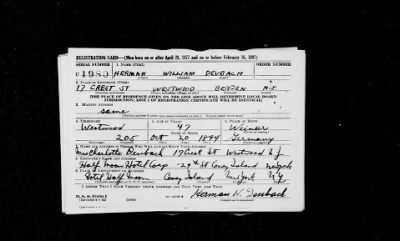 REGISTRATION CARD—(Men born on or after April 28, 1877 and on or before February 16, 1897)
SERIAL NUMBER 1. NAME (Print) ORDER NUMBER
U 1980 HERMAN WILLIAM DEUBACH
2. PLACE OF RESIDENCE (Print)
17 CREST ST WESTWOOD BERGEN N.J.
[THE PLACE OF RESIDENCE GIVEN ON THE LINE ABOVE WILL DETERMINE LOCAL BOARD
JURISDICTION; LINE 2 OF REGISTRATION CERTIFICATE WILL BE IDENTICAL]
3. MAILING ADDRESS
Same
4. TELEPHONE 5. AGE IN YEARS 6. PLACE OF BIRTH
Westwood 47
DATE OF BIRTH
205 Oct 20 1894 Germany
7. NAME AND ADDRESS OF PERSON WHO WILL ALWAYS KNOW YOUR ADDRESS
Mrs Charlotte Deubach 17 Crest St Westwood N.J.
8. EMPLOYER'S NAME AND ADDRESS
Half Moon Hotel Corp - 29th St Coney Island New York
9. PLACE OF EMPLOYMENT OR BUSINESS
Hotel Half Moon Coney Island New York N.Y.
I AFFIRM THAT I HAVE VERIFIED ABOVE ANSWERS AND THAT THEY ARE TRUE.
D. S. S. Form 1
Herman W. Deubach